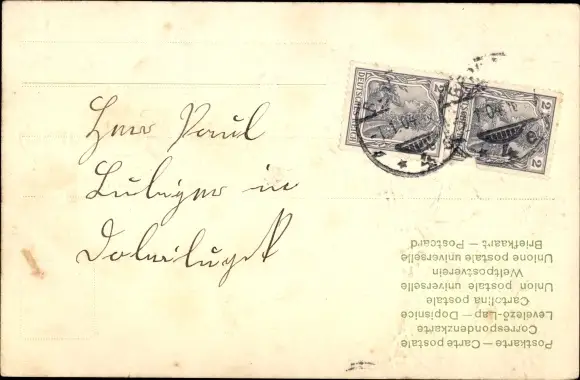 Herr Paul
Lubiger in
Dobrilugk
DEUTSCHES REICH
2
2
2
Postkarte — Carte postale
Correspondenzkarte
Levelező-Lap — Dopisnice
Cartolina postale
Union postale universelle
Weltpostverein
Unione postale universelle
Briefkaart — Postcard